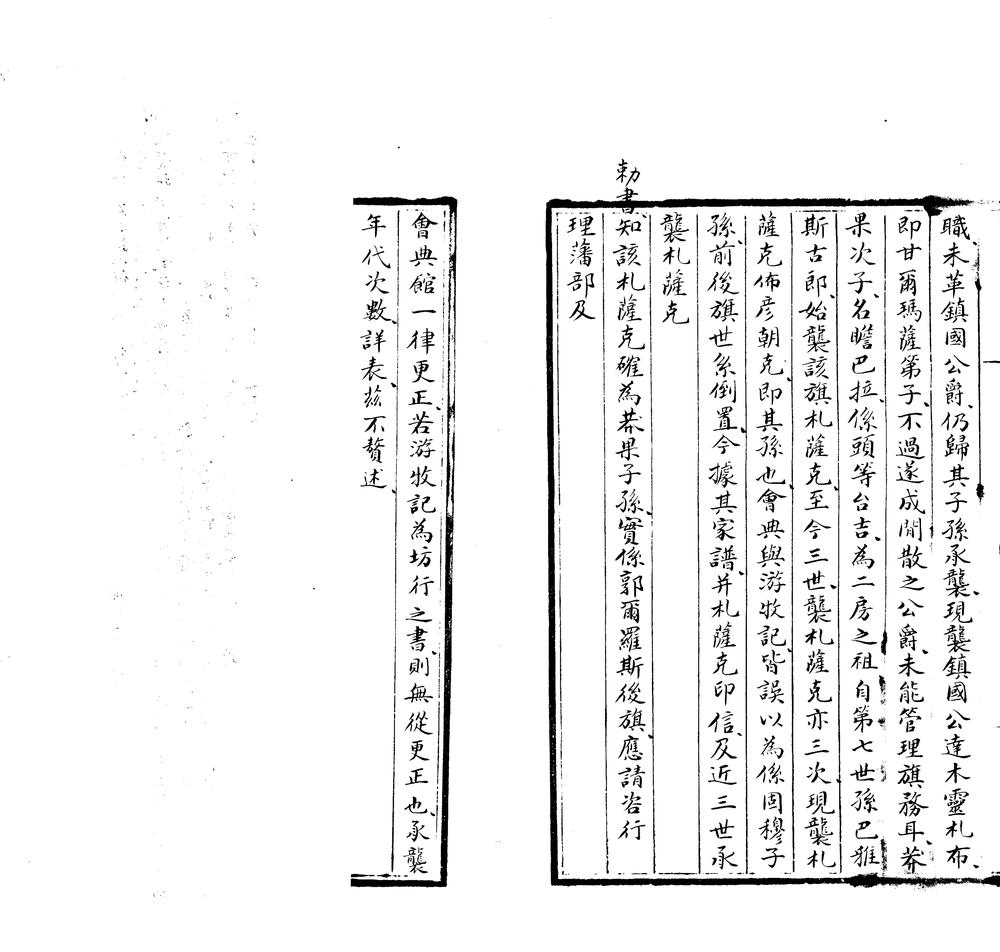 職、未革鎮國公爵、仍歸其子孫承襲、現襲鎮國公達木靈札布、
即甘爾瑪薩第子、不過遂成閒散之公爵、未能管理旗務耳、莽
果次子、名瞻巴拉、係頭等台吉、為二房之祖自第七世孫巴雅
斯古郎、始襲該旗札薩克、至今三世、襲札薩克亦三次、現襲札
薩克佈彥朝克、即其孫也、會典與游牧記、皆誤以為係固穆子
孫、前後旗世系倒置、今據其家譜、并札薩克印信、及近三世承
襲札薩克
勅書、知該札薩克確為莽果子孫、實係郭爾羅斯後旗、應請咨行
理藩部及
會典館一律更正、若游牧記為坊行之書、則無從更正也、承襲
年代次數、詳表、茲不贅述、